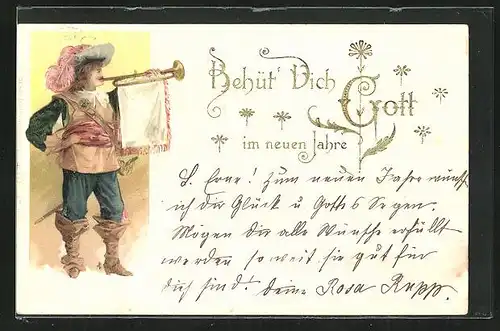 Behüt' Dich Gott
im neuen Jahre
L. Erne! Zum neuen Jahre wünsch
ich dir Glück u Gottes Segen.
Mögen dir alle Wünsche erfüllt
werden so weit sie gut für
dich sind! Deine Rosa Rupp.